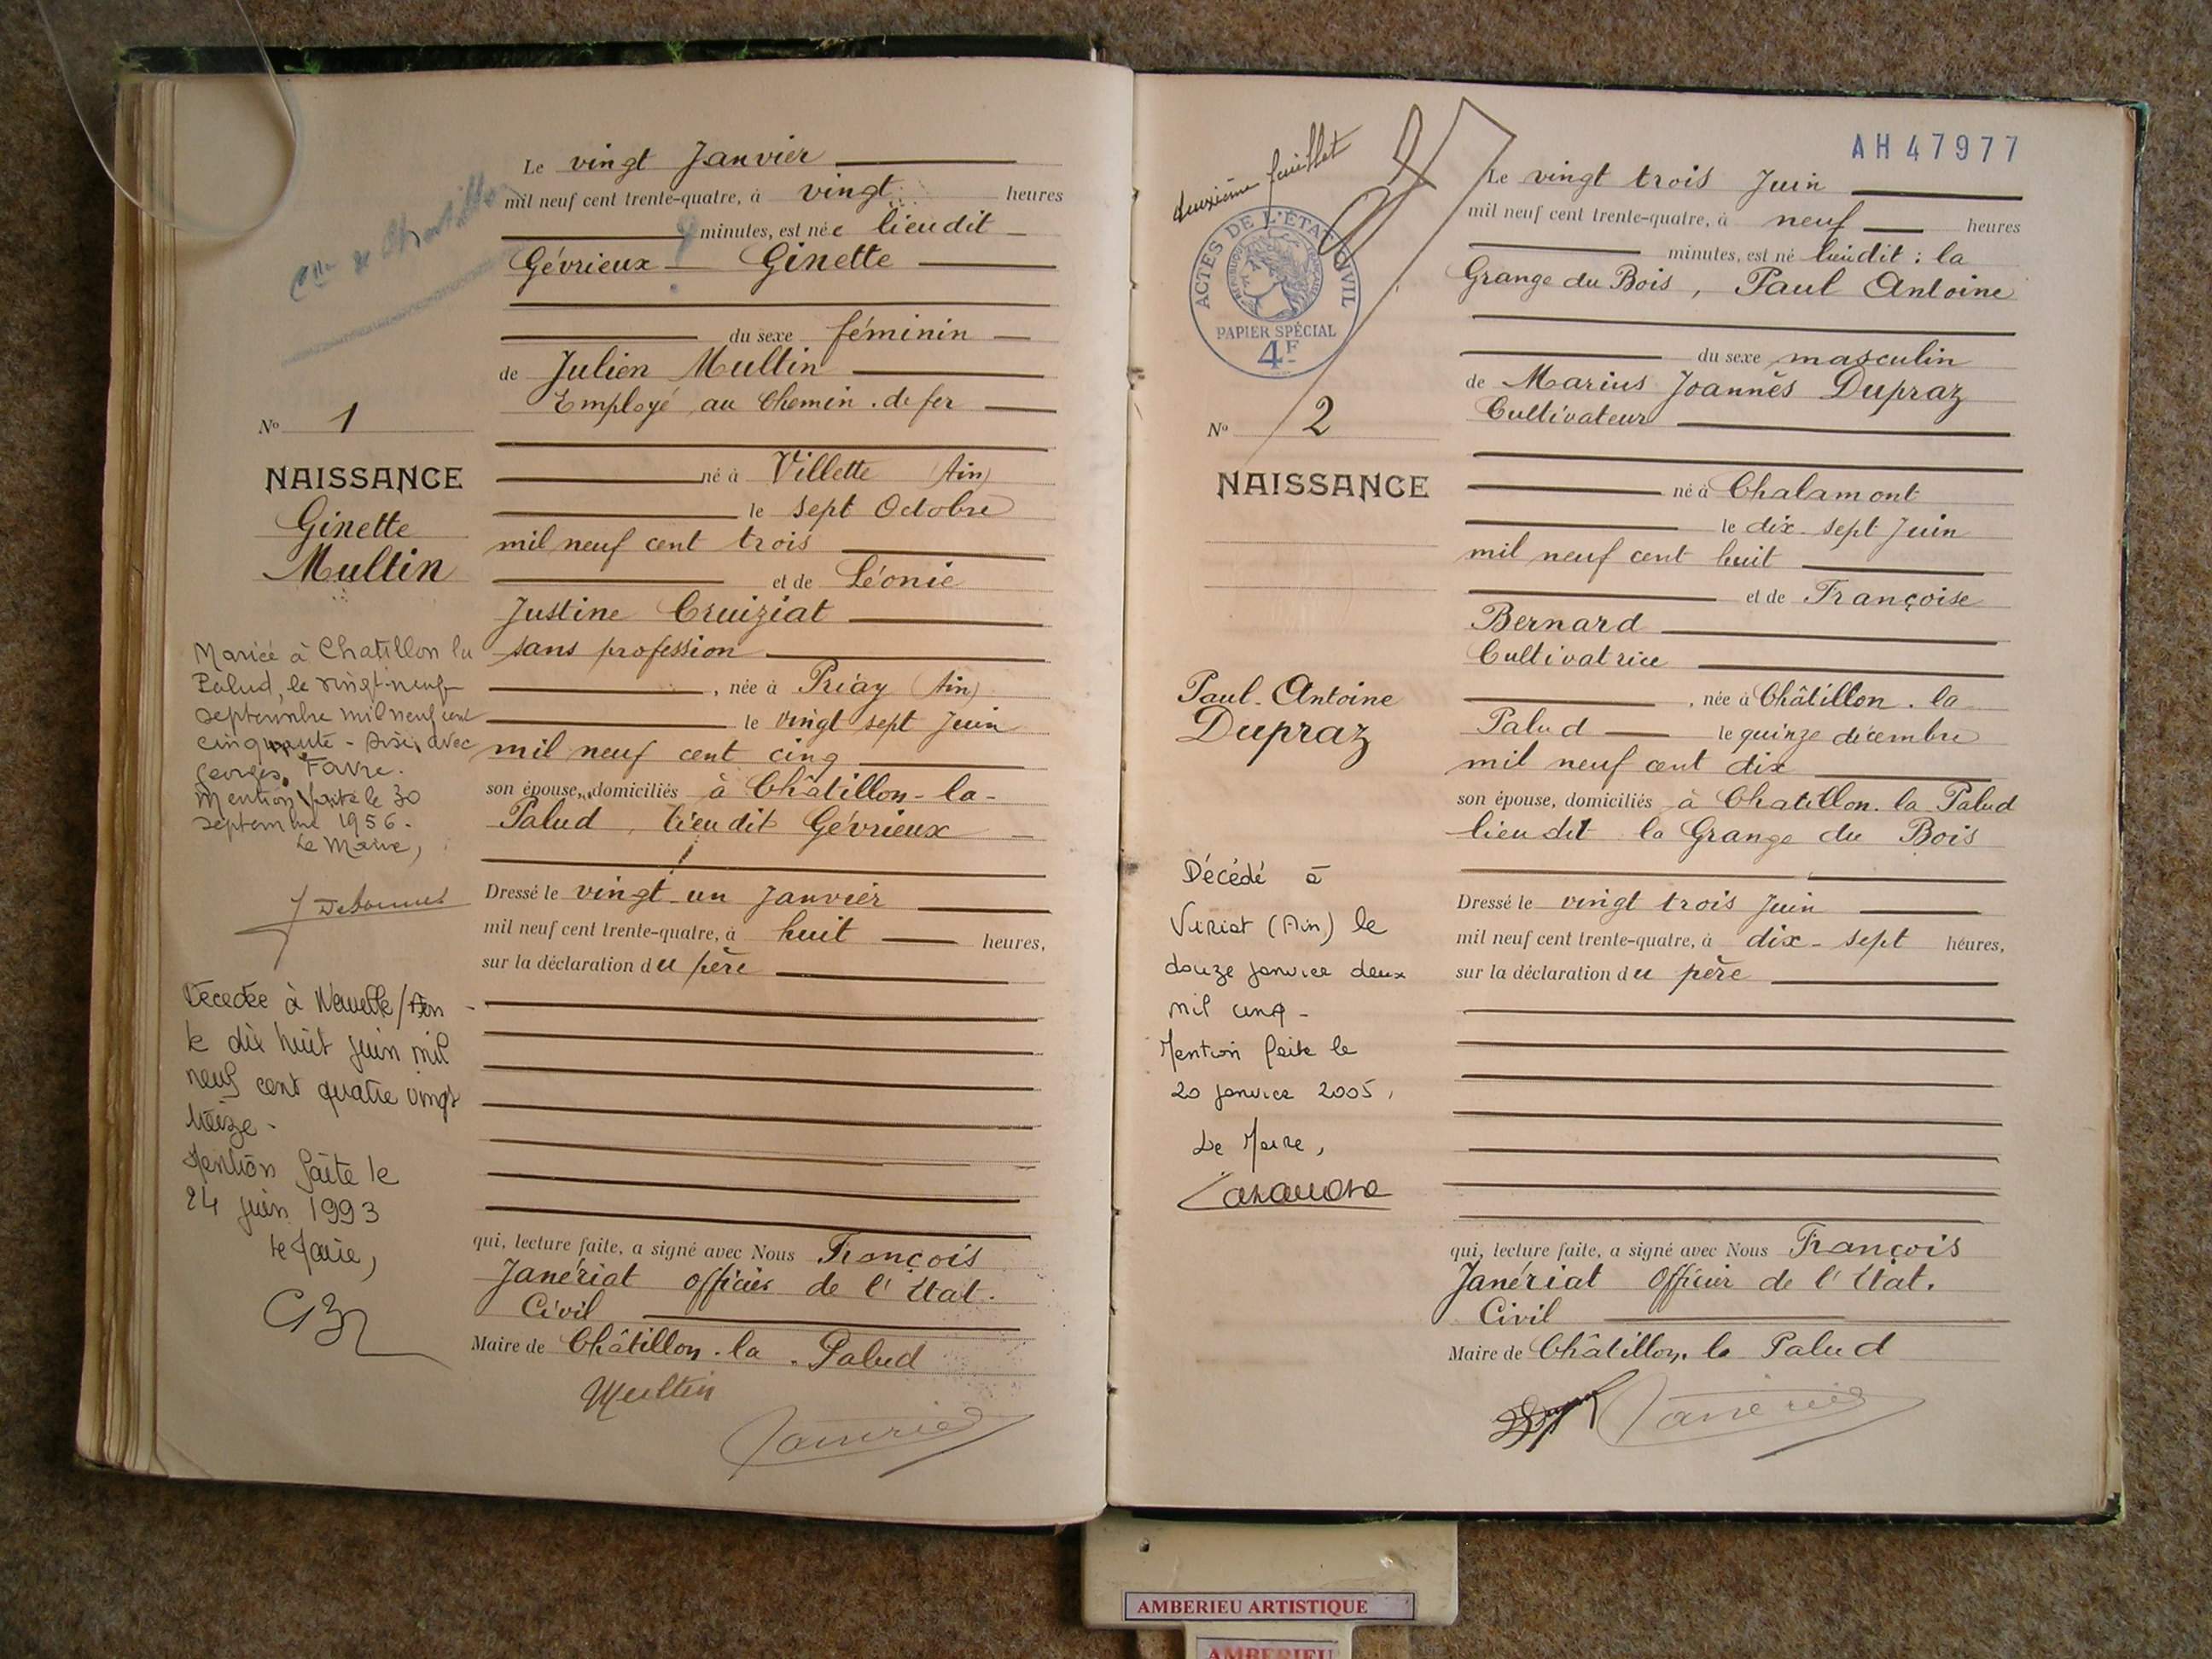 Le vingt Janvier
mil neuf cent trente-quatre, à vingt heures
minutes, est née lieudit
Gévrieux Ginette
du sexe féminin
de Julien Multin
Employé au Chemin de fer
né à Villette (Ain)
le sept Octobre
mil neuf cent trois
et de Léonie
Justine Cruiziat
sans profession
, née à Priay (Ain)
le vingt sept Juin
mil neuf cent cinq
son épouse, domiciliés à Châtillon-la-
Palud, lieudit Gévrieux
Dressé le vingt-un Janvier
mil neuf cent trente-quatre, à huit heures,
sur la déclaration du père
qui, lecture faite, a signé avec Nous François
Janériat officier de l'Etat-
Civil
Maire de Châtillon-la-Palud
Multin
No 1
NAISSANCE
Ginette
Multin
Mariée à Chatillon la
Palud, le vingt-neuf
septembre mil neuf cent
cinquante-six, avec
Georges Favre.
Mention faite le 30
septembre 1956.
Le Maire,
Décédée à /Ain
le dix huit juin mil
neuf cent quatre vingt
treize-
Mention faite le
24 juin 1993
le Maire,
deuxième feuillet
ACTES DE L'ÉTAT CIVIL
PAPIER SPÉCIAL
4F
AH 47977
Le vingt trois Juin
mil neuf cent trente-quatre, à neuf heures
minutes, est né lieudit : la
Grange du Bois, Paul Antoine
du sexe masculin
de Marius Joannès Dupraz
Cultivateur
né à Chalamont
le dix-sept Juin
mil neuf cent huit
et de Françoise
Bernard
Cultivatrice
, née à Châtillon-la
Palud le quinze décembre
mil neuf cent dix
son épouse, domiciliés à Chatillon-la Palud
lieudit la Grange du Bois
Dressé le vingt trois Juin
mil neuf cent trente-quatre, à dix-sept heures,
sur la déclaration du père
qui, lecture faite, a signé avec Nous François
Janériat Officier de l'Etat-
Civil
Maire de Châtillon-la Palud
No 2
NAISSANCE
Paul-Antoine
Dupraz
Décédé à
Viriat (Ain) le
douze janvier deux
mil cinq-
Mention faite le
20 janvier 2005,
Le Maire,
AMBERIEU ARTISTIQUE
AMBERIEU